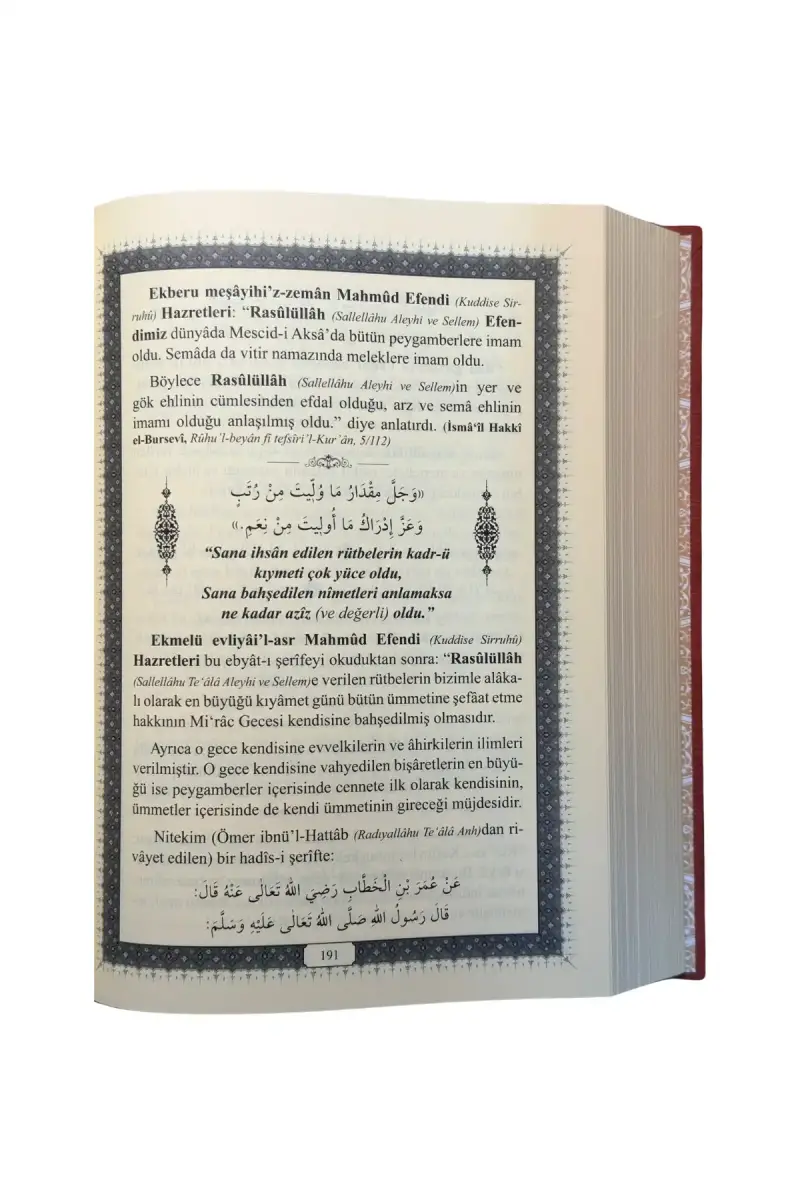 Ekberu meşâyihi’z-zemân Mahmûd Efendi (Kuddise Sir-
ruhû) Hazretleri: “Rasûlüllâh (Sallellâhu Aleyhi ve Sellem) Efen-
dimiz dünyâda Mescid-i Aksâ’da bütün peygamberlere imam
oldu. Semâda da vitir namazında meleklere imam oldu.
Böylece Rasûlüllâh (Sallellâhu Aleyhi ve Sellem)in yer ve
gök ehlinin cümlesinden efdal olduğu, arz ve semâ ehlinin
imamı olduğu anlaşılmış oldu.” diye anlatırdı. (İsmâ‘îl Hakkî
el-Bursevî, Rûhu’l-beyân fî tefsîri’l-Kur’ân, 5/112)
«وَجَلَّ مِقْدَارُ مَا وُلِّيتَ مِنْ رُتَبٍ
وَعَزَّ إِدْرَاكُ مَا أُولِيتَ مِنْ نِعَمِ.»
“Sana ihsân edilen rütbelerin kadr-ü
kıymeti çok yüce oldu,
Sana bahşedilen nîmetleri anlamaksa
ne kadar azîz (ve değerli) oldu.”
Ekmelü evliyâi’l-asr Mahmûd Efendi (Kuddise Sirruhû)
Hazretleri bu ebyât-ı şerîfeyi okuduktan sonra: “Rasûlüllâh
(Sallellâhu Te‘âlâ Aleyhi ve Sellem)e verilen rütbelerin bizimle alâka-
lı olarak en büyüğü kıyâmet günü bütün ümmetine şefâat etme
hakkının Mi‘râc Gecesi kendisine bahşedilmiş olmasıdır.
Ayrıca o gece kendisine evvelkilerin ve âhirkilerin ilimleri
verilmiştir. O gece kendisine vahyedilen bişâretlerin en büyü-
ğü ise peygamberler içerisinde cennete ilk olarak kendisinin,
ümmetler içerisinde de kendi ümmetinin gireceği müjdesidir.
Nitekim (Ömer ibnü’l-Hattâb (Radıyallâhu Te‘âlâ Anh)dan ri-
vâyet edilen) bir hadîs-i şerîfte:
عَنْ عُمَرَ بْنِ الْخَطَّابِ رَضِيَ اللّٰهُ تَعَالٰى عَنْهُ قَالَ:
قَالَ رَسُولُ اللّٰهِ صَلَّى اللّٰهُ تَعَالٰى عَلَيْهِ وَسَلَّمَ:
191